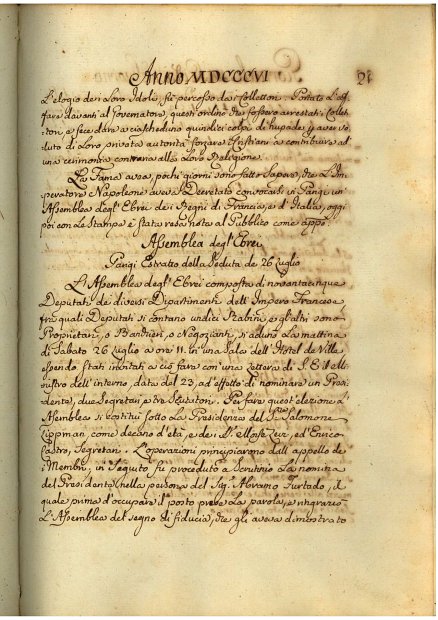 Anno MDCCCVI
28
L'elogio dei Loro Idoli, fù percosso dai Collettori. Portato L'af-
fare davanti al Governatore, questi ordinò che fossero arrestati i Collet-
tori, e fece dare a ciascheduno quindici colpi di per aver vo-
luto di Loro privata autorità forzare i Cristiani a contribuire ad
una cerimonia contraria alla Loro Religione.
La Fama aveva, pochi giorni sono fatto Sapere, che L'Im-
peratore Napoleone aveva Decretato convocarsi in Parigi un
Assemblea degl'Ebrei dei Regni di Francia, e d'Italia, oggi
poi con Le Stampe è stata resa nota al Pubblico come appo.
Assemblea degl'Ebrei
Parigi Estratto della Seduta de 26 Luglio
L'Assemblea degl'Ebrei composta di novantacinque
Deputati de diversi Dipartimenti dell'Impero Francese,
frà quali Deputati si contano undici Rabini, e gl'altri sono
Proprietari, o Banchieri, o Negozianti, si adunò La mattina
di Sabato 26 Luglio a ore 11. in una Sala dell'Hotel de Ville
essendo stati invitati a ciò fare con una Lettera di S. E. il Mi-
nistro dell'interno, data del 23, ad effetto di nominare un Presi-
dente, due Segretari, e tre Scrutatori. Per fare quest'elezione L'
Assemblea si costituì sotto La Presidenza del Sr. Salomone
Lippman, come decano d'età, e de i Sri. ed Enrico
Castro, Segretari. L'operazioni principiarono dall'appello de
i Membri, in Seguito fù proceduto a Scrutinio La nomina
del Presidente nella persona del Sig. Abramo Furtado, il
quale prima d'occupare il posto prese La parola, e ringraziò
L'Assemblea del segno di fiducia, che gli aveva dimostrato